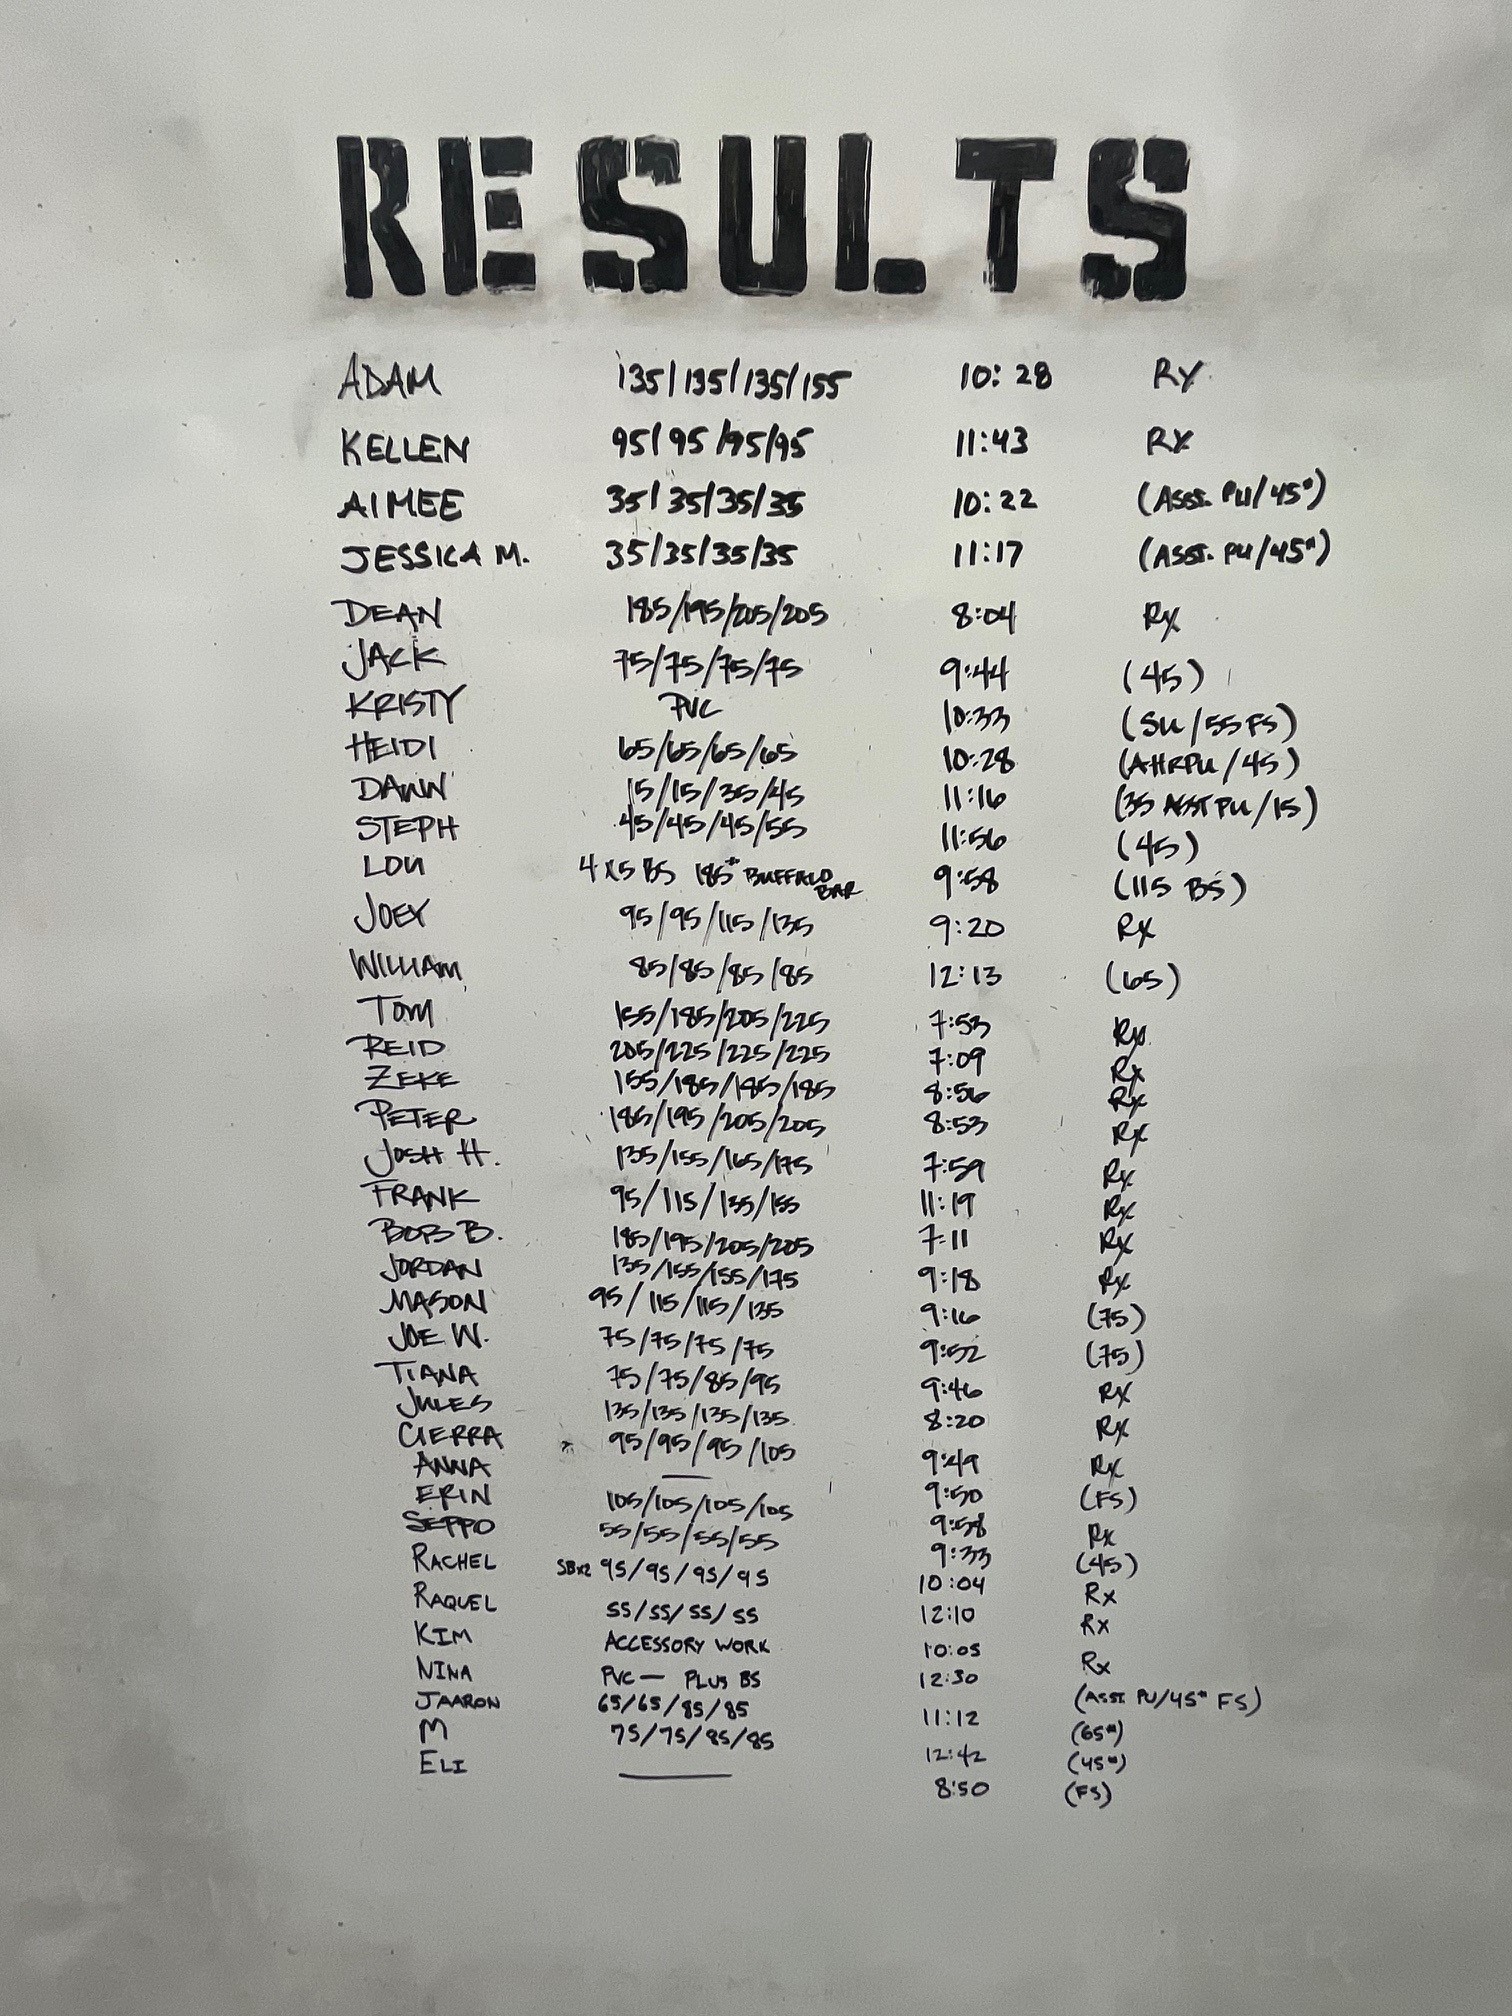 RESULTS
ADAM 135/135/135/155 10:28 RX
KELLEN 95/95/95/95 11:43 RX
AIMEE 35/35/35/35 10:22 (ASST. PU/45#)
JESSICA M. 35/35/35/35 11:17 (ASST. PU/45#)
DEAN 185/195/205/205 8:04 RX
JACK 75/75/75/75 9:44 (45)
KRISTY PVC 10:33 (SU/55 FS)
HEIDI 65/65/65/65 10:28 (AHRPU/45)
DAWN 15/15/35/45 11:16 (35 ASST PU/15)
STEPH 45/45/45/55 11:56 (45)
LOU 4x5 BS 185# BUFFALO BAR 9:58 (115 BS)
JOEY 95/95/115/135 9:20 RX
WILLIAM 85/85/85/85 12:13 (65)
TOM 155/185/205/225 7:53 Rx
REID 205/225/225/225 7:09 Rx
ZEKE 155/185/185/185 8:56 Rx
PETER 185/195/205/205 8:53 Rx
JOSH H. 135/155/165/175 7:59 Rx
FRANK 95/115/135/155 11:19 Rx
BOB B. 185/195/205/205 7:11 Rx
JORDAN 135/155/155/175 9:18 Rx
MASON 95/115/115/135 9:16 (75)
JOE W. 75/75/75/75 9:52 (75)
TIANA 75/75/85/95 9:46 Rx
JULES 135/135/135/135 8:20 Rx
CIERRA 95/95/95/105 9:49 Rx
ANNA — 9:50 (FS)
ERIN 105/105/105/105 9:58 Rx
SEPPO 55/55/55/55 9:33 (45)
RACHEL SBx2 95/95/95/95 10:04 Rx
RAQUEL 55/55/55/55 12:10 Rx
KIM ACCESSORY WORK 10:05 Rx
NINA PVC — PLUS BS 12:30 (ASST. PU/45# FS)
JAARON 65/65/85/85 11:12 (65#)
M 75/75/85/85 12:42 (45#)
ELI — 8:50 (FS)